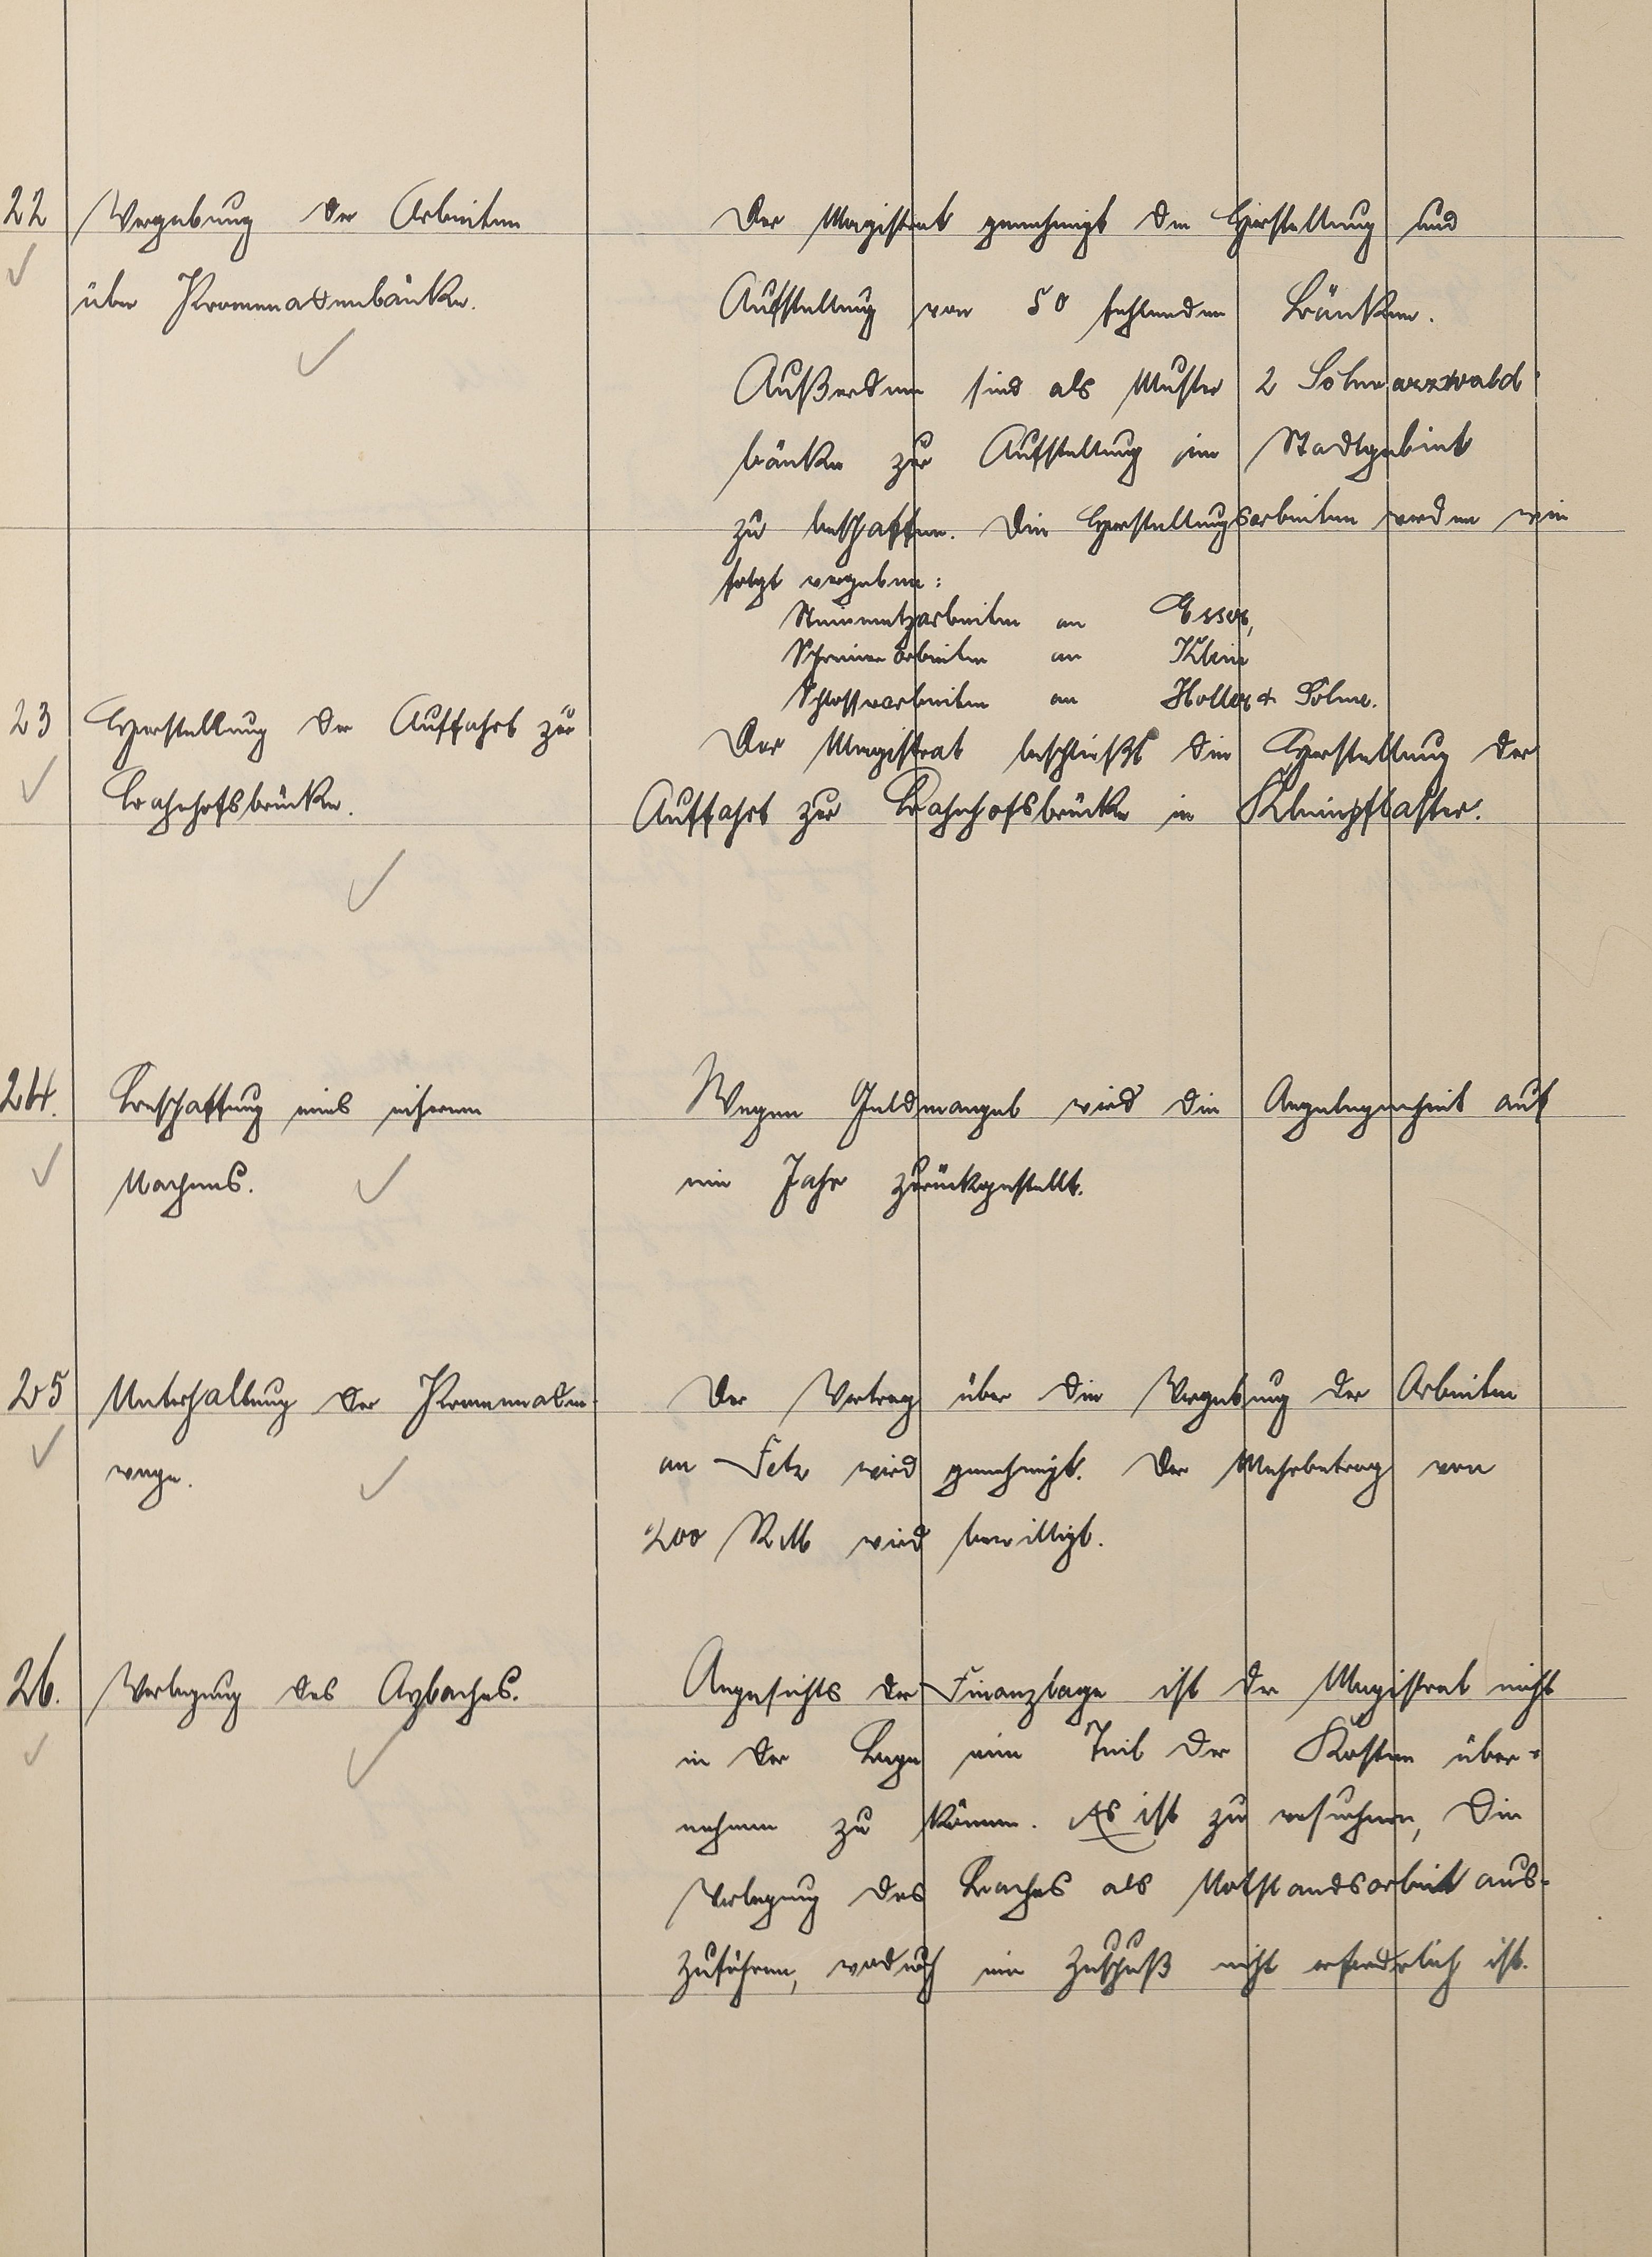 22 Vergebung der Arbeiten
über Promenadenbänke.
Der Magistrat genehmigt die Herstellung und
Aufstellung von 50 fehlenden Bänken.
Außerdem sind als Muster 2 Schwarzwald-
bänke zur Aufstellung im Stadtgebiet
zu beschaffen. Die Herstellungsarbeiten werden wie
folgt vergeben:
Steinmetzarbeiten an Esser,
Schreinerarbeiten an Klein
Schlosserarbeiten an Holler & Söhne.
23 Herstellung der Auffahrt zur
Bahnhofsbrücke.
Der Magistrat beschließt die Herstellung der
Auffahrt zur Bahnhofsbrücke in Kleinpflaster.
24. Beschaffung eines eisernen
Nachens.
Wegen Geldmangel wird die Angelegenheit auf
ein Jahr zurückgestellt.
25 Unterhaltung der Promenaden-
wege.
Der Vertrag über die Vergebung der Arbeiten
an Fetz wird genehmigt. Der Mehrbetrag von
200 RM wird bewilligt.
26. Verlegung des Aybaches.
Angesichts der Finanzlage ist der Magistrat nicht
in der Lage ein Teil der Kosten über-
nehmen zu können. Es ist zu versuchen, die
Verlegung des Baches als Notstandsarbeit aus-
zuführen, wodurch ein Zuschuß nicht erforderlich ist.